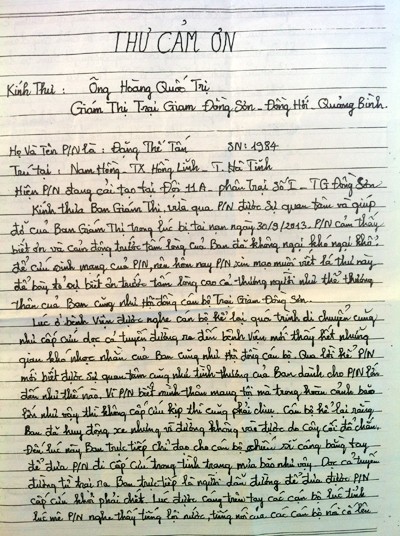 THƯ CẢM ƠN
Kính Thư : Ông Hoàng Quốc Trị
Giám Thị Trại Giam Đồng Sơn - Đồng Hới - Quảng Bình.
Họ Và Tên P/N là : Đặng Thế Tấn SN: 1984
Trú tại : Nam Hồng - TX Hồng Lĩnh - T. Hà Tĩnh
Hiện P/N đang cải tạo tại Đội 11A - phân Trại Số I - TG Đồng Sơn
Kính thưa Ban Giám Thị, vừa qua P/N được Sự quan tâm và giúp
đỡ của Ban Giám Thị trong lúc bị tai nạn ngày 30/9/2013. P/N cảm thấy
biết ơn và cảm động trước tấm lòng của Ban đã không ngại khó ngại khổ
để cứu sinh mạng của P/N, nên hôm nay P/N xin mạo muội viết lá thư này
để bày tỏ sự biết ơn trước tấm lòng cao cả thương người như thể thương
thân của Ban cũng như Hội đồng cán bộ Trại Giam Đồng Sơn.
Lúc ở bệnh viện được nghe cán bộ kể lại quá trình di chuyển cũng
như cấp cứu dọc cả tuyến đường ra đến bệnh viện mới thấy hết những
gian khổ nhọc nhằn của Ban cũng như Hội đồng cán bộ. Qua lời kể P/N
mới biết được Sự quan tâm cũng như tình thương của Ban dành cho P/N lớn
đến như thế nào. Vì P/N biết mình thân mang tội mà trong hoàn cảnh bão
lớn như vậy thì không cấp cứu kịp thì cũng phải chịu. Cán bộ kể lại rằng
Ban đã huy động xe nhưng vì đường không vào được do cây cối đổ chắn.
Đến lúc này Ban trực tiếp chỉ đạo cho cán bộ chiến sĩ cáng bằng tay
để đưa P/N đi cấp cứu trong tình trạng mưa bão như vậy. Dọc cả tuyến
đường từ trại ra Ban trực tiếp là người dẫn đường để đưa được P/N
cấp cứu khỏi phải chết. Lúc được cáng trên tay các cán bộ lúc tỉnh
lúc mê P/N nghe thấy tiếng lội nước, tiếng nói của các cán bộ nói cố lên